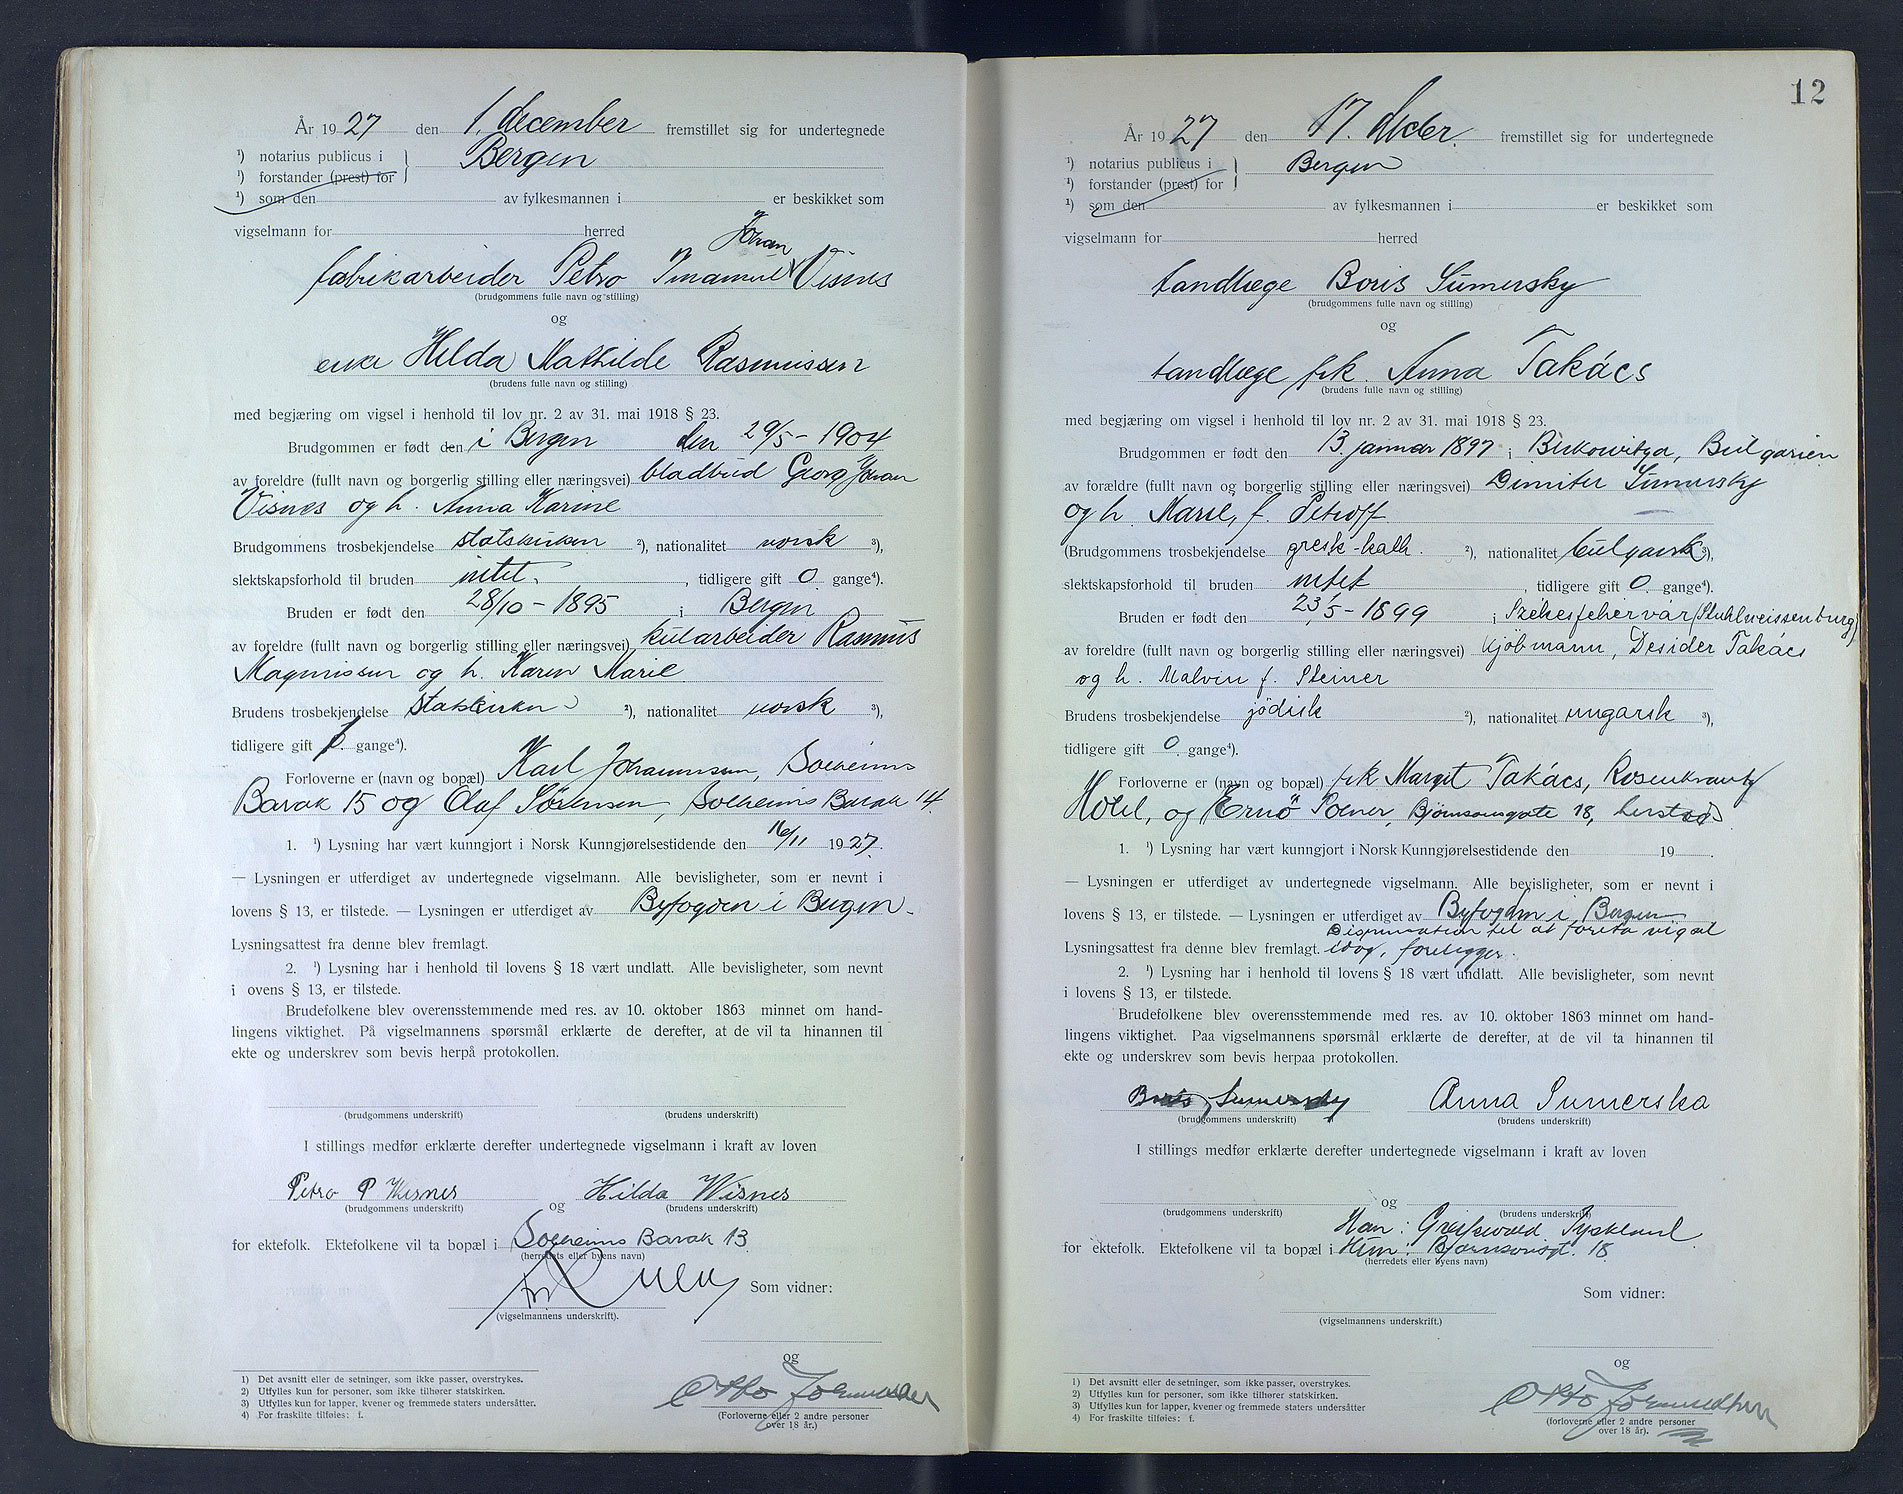 År 1927 den 1. december fremstillet sig for undertegnede
¹) notarius publicus i } Bergen
¹) forstander (prest) for
¹) som den av fylkesmannen i er beskikket som
vigselmann for herred
Johan
fabrikarbeider Petro Imanuel Visnes
(brudgommens fulle navn og stilling)
og
enke Hilda Mathilde Rasmussen
(brudens fulle navn og stilling)
med begjæring om vigsel i henhold til lov nr. 2 av 31. mai 1918 § 23.
Brudgommen er født den i Bergen den 29/5 - 1904
av foreldre (fullt navn og borgerlig stilling eller næringsvei) bladbud Georg Johan
Visnes og h. Anna Karine
Brudgommens trosbekjendelse statskirken ²), nationalitet norsk ³),
slektskapsforhold til bruden intet. , tidligere gift 0 gange⁴).
Bruden er født den 28/10 - 1895 i Bergen
av foreldre (fullt navn og borgerlig stilling eller næringsvei) kularbeider Rasmus
Magnussen og h. Karen Marie
Brudens trosbekjendelse statskirken ²), nationalitet norsk ³),
tidligere gift 1. gange⁴).
Forloverne er (navn og bopæl) Karl Johannesen, Solheims
Barak 15 og Olaf Sørensen, Solheims Barak 14.
1. ¹) Lysning har vært kunngjort i Norsk Kunngjørelsestidende den 16/11 1927.
— Lysningen er utferdiget av undertegnede vigselmann. Alle bevisligheter, som er nevnt i
lovens § 13, er tilstede. — Lysningen er utferdiget av Byfogden i Bergen.
Lysningsattest fra denne blev fremlagt.
2. ¹) Lysning har i henhold til lovens § 18 vært undlatt. Alle bevisligheter, som nevnt
i ovens § 13, er tilstede.
Brudefolkene blev overensstemmende med res. av 10. oktober 1863 minnet om hand-
lingens viktighet. På vigselmannens spørsmål erklærte de derefter, at de vil ta hinannen til
ekte og underskrev som bevis herpå protokollen.
(brudgommens underskrift) (brudens underskrift)
I stillings medfør erklærte derefter undertegnede vigselmann i kraft av loven
Petro P Wisnes og Hilda Wisnes
(brudgommens underskrift) (brudens underskrift)
for ektefolk. Ektefolkene vil ta bopæl i Solheims Barak 13
(herredets eller byens navn)
Som vidner:
(vigselmannens underskrift).
og
Otto Johannessen
(Forloverne eller 2 andre personer
over 18 år.)
1) Det avsnitt eller de setninger, som ikke passer, overstrykes.
2) Utfylles kun for personer, som ikke tilhører statskirken.
3) Utfylles kun for lapper, kvener og fremmede staters undersåtter.
4) For fraskilte tilføies: f.
12
År 1927 den 17. decbr. fremstillet sig for undertegnede
¹) notarius publicus i } Bergen
¹) forstander (prest) for
¹) som den av fylkesmannen i er beskikket som
vigselmann for herred
tandlæge Boris Sumersky
(brudgommens fulle navn og stilling)
og
tandlæge frk. Anna Takács
(brudens fulle navn og stilling)
med begjæring om vigsel i henhold til lov nr. 2 av 31. mai 1918 § 23.
Brudgommen er født den 13. januar 1897 i Berkowitza, Bulgarien
av forældre (fullt navn og borgerlig stilling eller næringsvei) Dimiter Sumersky
og h. Marie, f. Petroff
(Brudgommens trosbekjendelse gresk-kath. ²), nationalitet bulgarsk ³),
slektskapsforhold til bruden intet , tidligere gift 0. gange⁴).
Bruden er født den 23/5 - 1899 i Szekesfehervár (Stuhlweissenburg)
av foreldre (fullt navn og borgerlig stilling eller næringsvei) kjöbmann, Desider Takács
og h. Malvin f. Steiner
Brudens trosbekjendelse jödisk ²), nationalitet ungarsk ³),
tidligere gift 0. gange⁴).
Forloverne er (navn og bopæl) frk Margit Takács, Rosenkrantz
Hotel, og Ernö Polner, Bjørnsonsgate 18, hersteds
1. ¹) Lysning har vært kunngjort i Norsk Kunngjørelsestidende den 19 .
— Lysningen er utferdiget av undertegnede vigselmann. Alle bevisligheter, som er nevnt i
lovens § 13, er tilstede. — Lysningen er utferdiget av Byfogden i Bergen
Dispensation til at foreta vigsel
Lysningsattest fra denne blev fremlagt. idag, foreligger.
2. ¹) Lysning har i henhold til lovens § 18 vært undlatt. Alle bevisligheter, som nevnt
i lovens § 13, er tilstede.
Brudefolkene blev overensstemmende med res. av 10. oktober 1863 minnet om hand-
lingens viktighet. Paa vigselmannens spørsmål erklærte de derefter, at de vil ta hinannen til
ekte og underskrev som bevis herpaa protokollen.
Boris Sumersky Anna Sumerska
(brudgommens underskrift) (brudens underskrift)
I stillings medfør erklærte derefter undertegnede vigselmann i kraft av loven
og
(brudgommens underskrift) (brudens underskrift)
Han: Greifswald Tyskland.
for ektefolk. Ektefolkene vil ta bopæl i Hun: Bjørnsonsgt. 18
(herredets eller byens navn)
Som vidner:
(vigselmannens underskrift.)
og
Otto Johannessen
(forloverne eller 2 andre personer
over 18 år).
1) Det avsnitt eller de setninger, som ikke passer, overstrykes.
2) Utfylles kun for personer, som ikke tilhører statskirken.
3) Utfylles kun for lapper, kvener og fremmede staters undersåtter
4) For fraskilte tilføies: f.